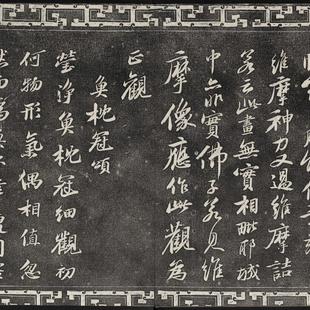 維摩神力又過維摩詰
若云此畫無實相毗耶城
中亦非實佛子若見維
摩像應作此觀為
正觀
魚枕冠頌
瑩淨魚枕冠細觀初
何物形氣偶相值忽